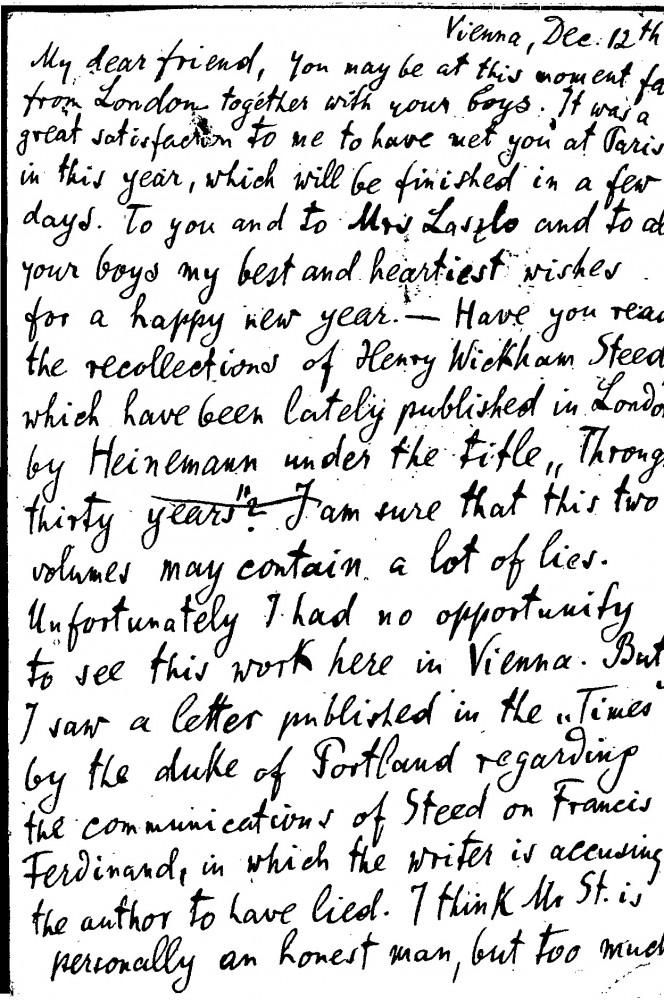 Vienna, Dec. 12th
My dear friend, you may be at this moment fa
from London together with your boys. It was a
great satisfaction to me to have met you at Paris
in this year, which will be finished in a few
days. To you and to Mrs Laszlo and to al
your boys my best and heartiest wishes
for a happy new year. — Have you read
the recollections of Henry Wickham Steed
which have been lately published in London
by Heinemann under the title „Throug
thirty years"? I am sure that this two
volumes may contain a lot of lies.
Unfortunately I had no opportunity
to see this work here in Vienna. But
I saw a letter published in the „Times"
by the duke of Portland regarding
the communications of Steed on Francis
Ferdinand, in which the writer is accusing
the author to have lied. I think Mr St. is
personally an honest man, but too much